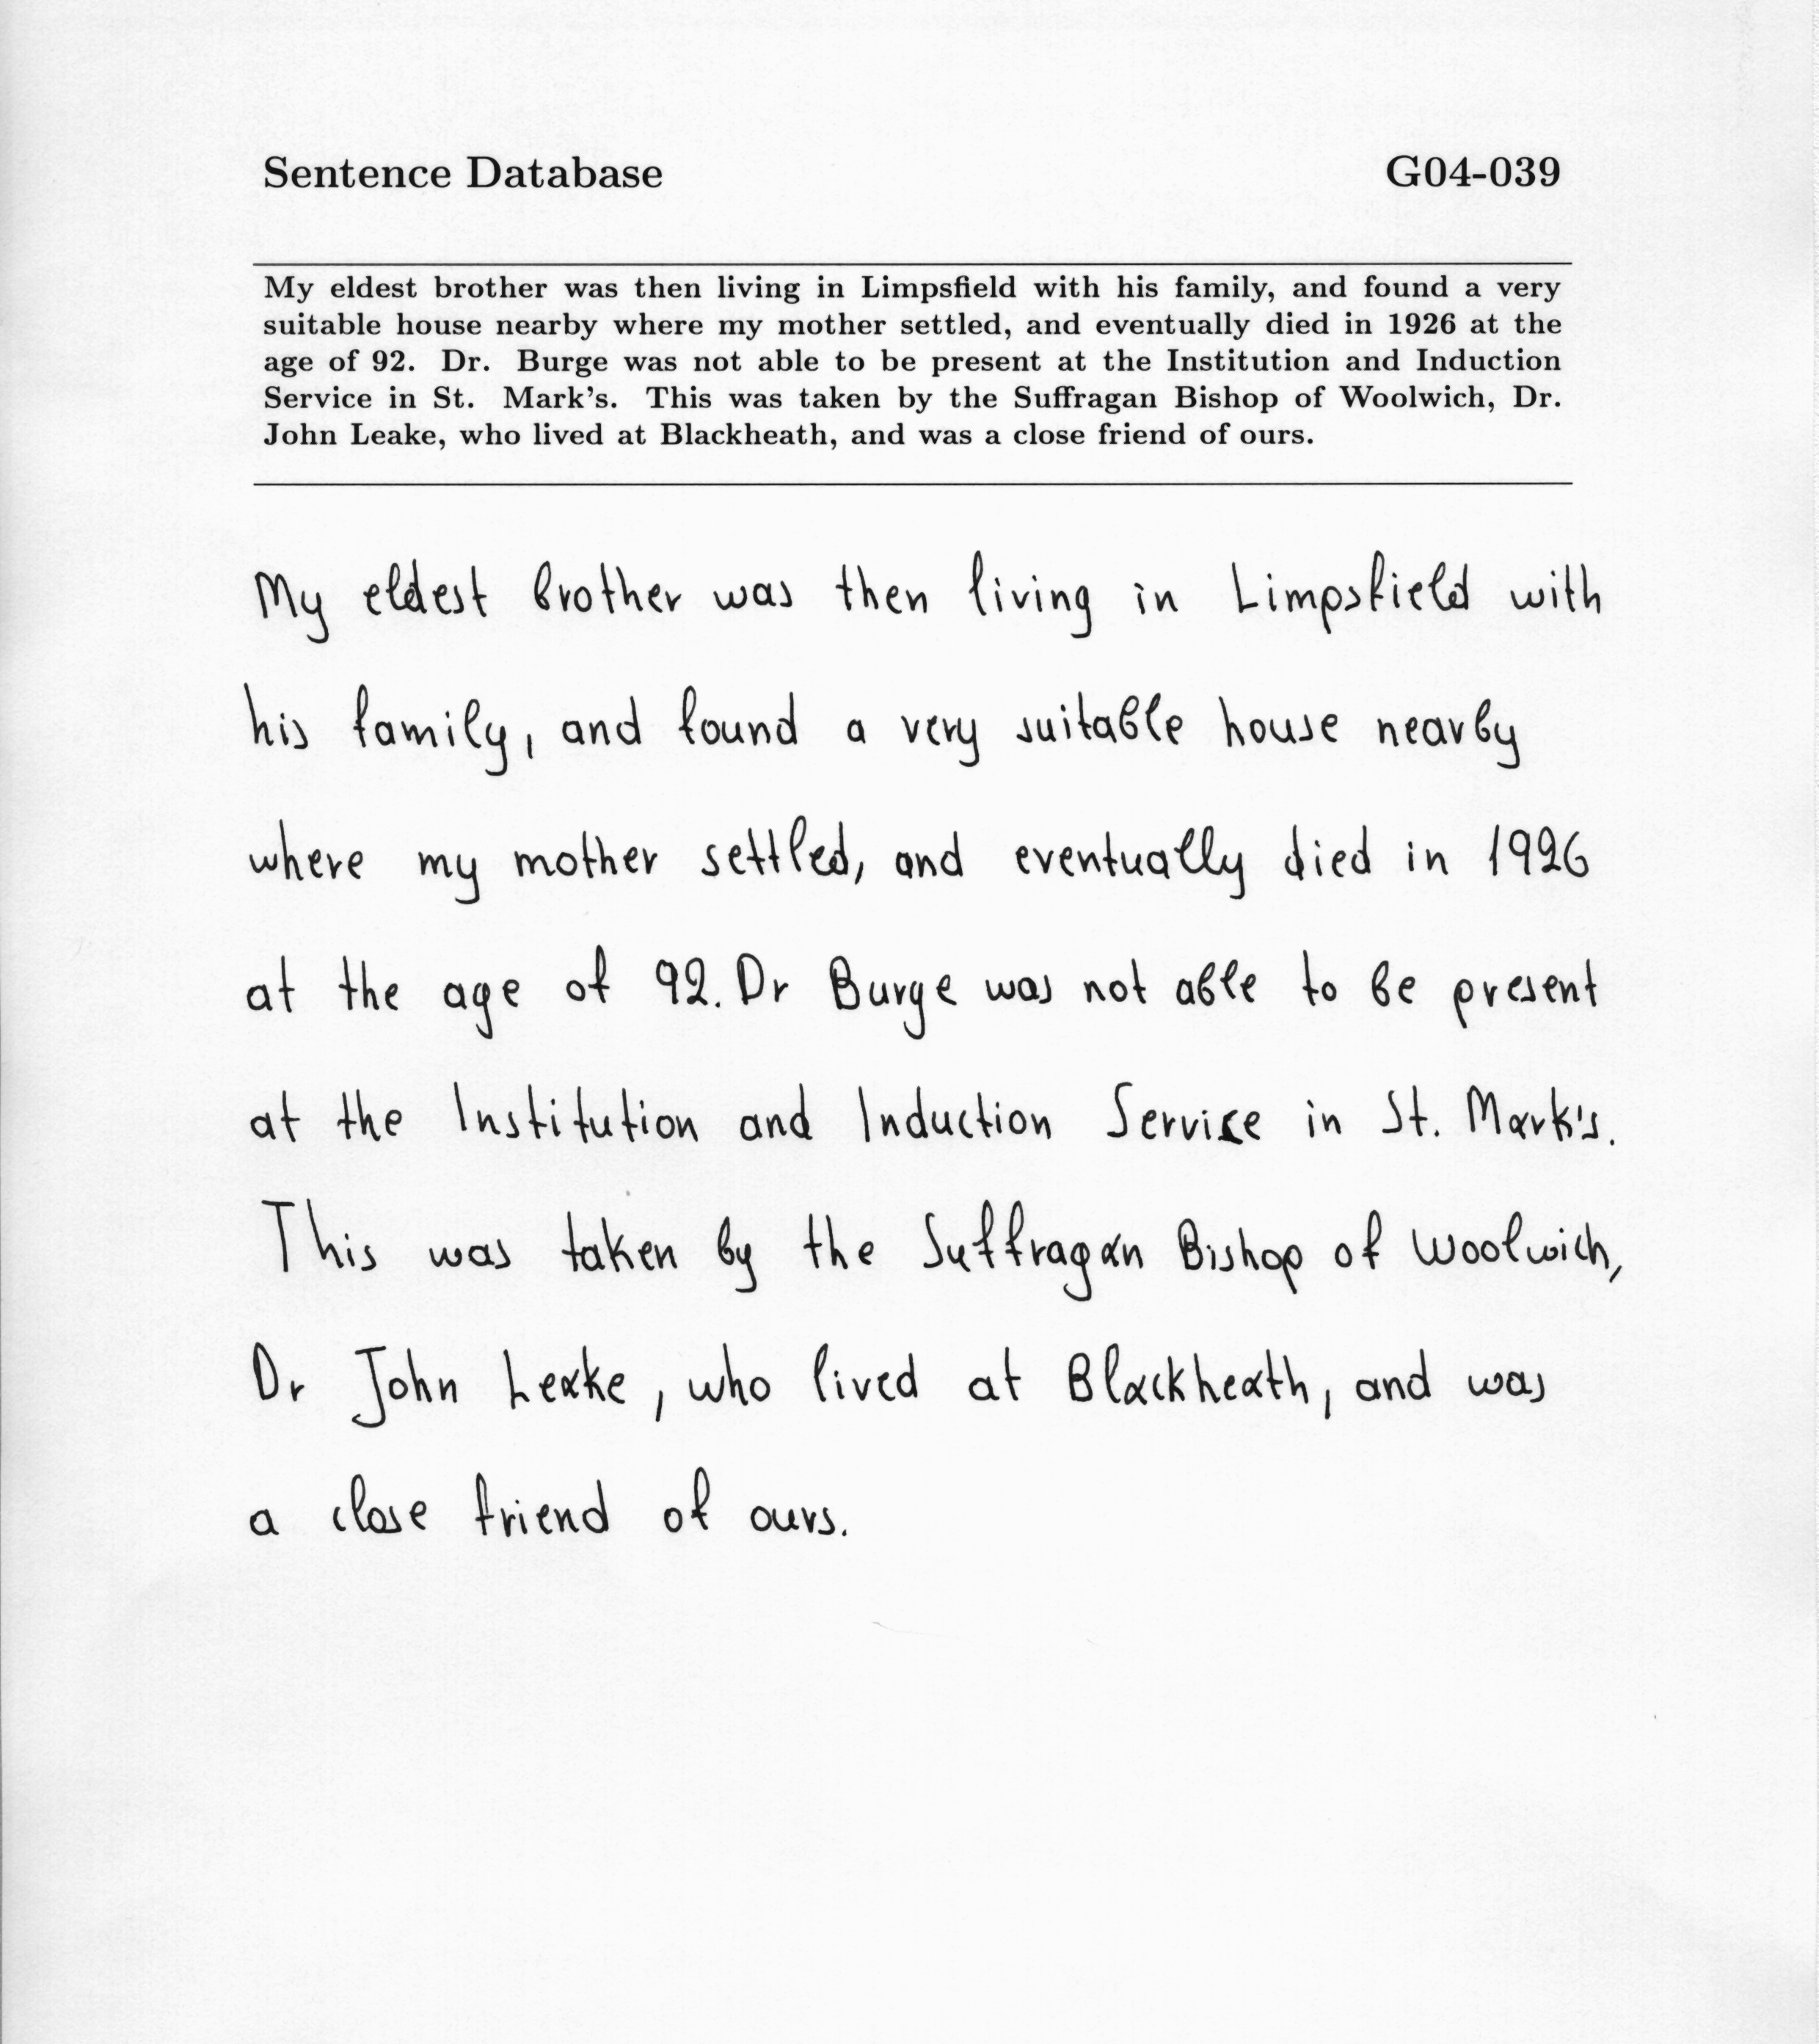 Sentence Database G04-039
My eldest brother was then living in Limpsfield with his family, and found a very
suitable house nearby where my mother settled, and eventually died in 1926 at the
age of 92. Dr. Burge was not able to be present at the Institution and Induction
Service in St. Mark's. This was taken by the Suffragan Bishop of Woolwich, Dr.
John Leake, who lived at Blackheath, and was a close friend of ours.
My eldest brother was then living in Limpsfield with
his family, and found a very suitable house nearby
where my mother settled, and eventually died in 1926
at the age of 92. Dr Burge was not able to be present
at the Institution and Induction Service in St. Mark's.
This was taken by the Suffragan Bishop of Woolwich,
Dr John Leake, who lived at Blackheath, and was
a close friend of ours.